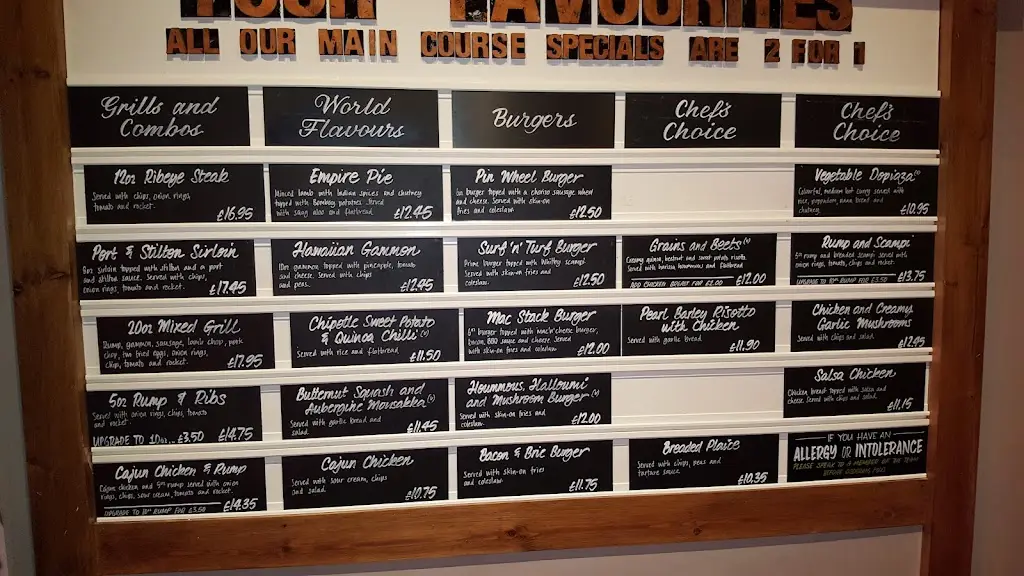 YOUR FAVOURITES
ALL OUR MAIN COURSE SPECIALS ARE 2 FOR 1
Grills and
Combos
12oz Ribeye Steak
Served with chips, onion rings,
tomato and rocket.
£16.95
Port & Stilton Sirloin
8oz sirloin topped with stilton and a port
and stilton sauce. Served with chips,
onion rings, tomato and rocket.
£17.45
20oz Mixed Grill
Rump, gammon, sausage, lamb chop, pork
chop, two fried eggs, onion rings,
chips, tomato and rocket.
£17.95
5oz Rump & Ribs
Served with onion rings, chips, tomato
and rocket.
UPGRADE TO 10oz £3.50 £14.75
Cajun Chicken & Rump
Cajun chicken and 5oz rump served with onion
rings, chips, sour cream, tomato and rocket.
UPGRADE TO 10oz RUMP FOR £3.50 £14.35
World
Flavours
Empire Pie
Minced lamb with Indian spices and chutney
topped with Bombay potatoes. Served
with saag aloo and flatbread.
£12.45
Hawaiian Gammon
10oz gammon topped with pineapple, tomato
and cheese. Served with chips
and peas.
£12.45
Chipotle Sweet Potato
& Quinoa Chilli (v)
Served with rice and flatbread.
£11.50
Butternut Squash and
Aubergine Moussakka (v)
Served with garlic bread and
salad.
£11.45
Cajun Chicken
Served with sour cream, chips
and salad.
£10.75
Burgers
Pin Wheel Burger
6oz burger topped with a chorizo sausage wheel
and cheese. Served with skin-on
fries and coleslaw.
£12.50
Surf 'n' Turf Burger
Prime burger topped with Whitby scampi.
Served with skin-on fries and
coleslaw.
£12.50
Mac Stack Burger
6oz burger topped with mac'n'cheese burger,
bacon, BBQ sauce and cheese. Served
with skin-on fries and coleslaw.
£12.00
Hoummous, Halloumi
and Mushroom Burger (v)
Served with skin-on fries and
coleslaw.
£12.00
Bacon & Brie Burger
Served with skin-on fries
and coleslaw.
£11.75
Chef's
Choice
Grains and Beets (v)
Creamy quinoa, beetroot and sweet potato risotto.
Served with harissa hoummous and flatbread.
ADD CHICKEN BREAST FOR £2.00 £12.00
Pearl Barley Risotto
with Chicken
Served with garlic bread.
£11.90
Breaded Plaice
Served with chips, peas and
tartare sauce.
£10.35
Chef's
Choice
Vegetable Dopiaza (v)
Colourful, medium hot curry served with
rice, poppadom, naan bread and
chutney.
£10.95
Rump and Scampi
5oz rump and breaded scampi served with
onion rings, tomato, chips and rocket.
UPGRADE TO 10oz RUMP FOR £3.50 £13.75
Chicken and Creamy
Garlic Mushrooms
Served with chips and salad.
£12.95
Salsa Chicken
Chicken breast topped with salsa and
cheese. Served with chips and salad.
£11.15
IF YOU HAVE AN
ALLERGY OR INTOLERANCE
PLEASE SPEAK TO A MEMBER OF THE TEAM
BEFORE ORDERING MEAL